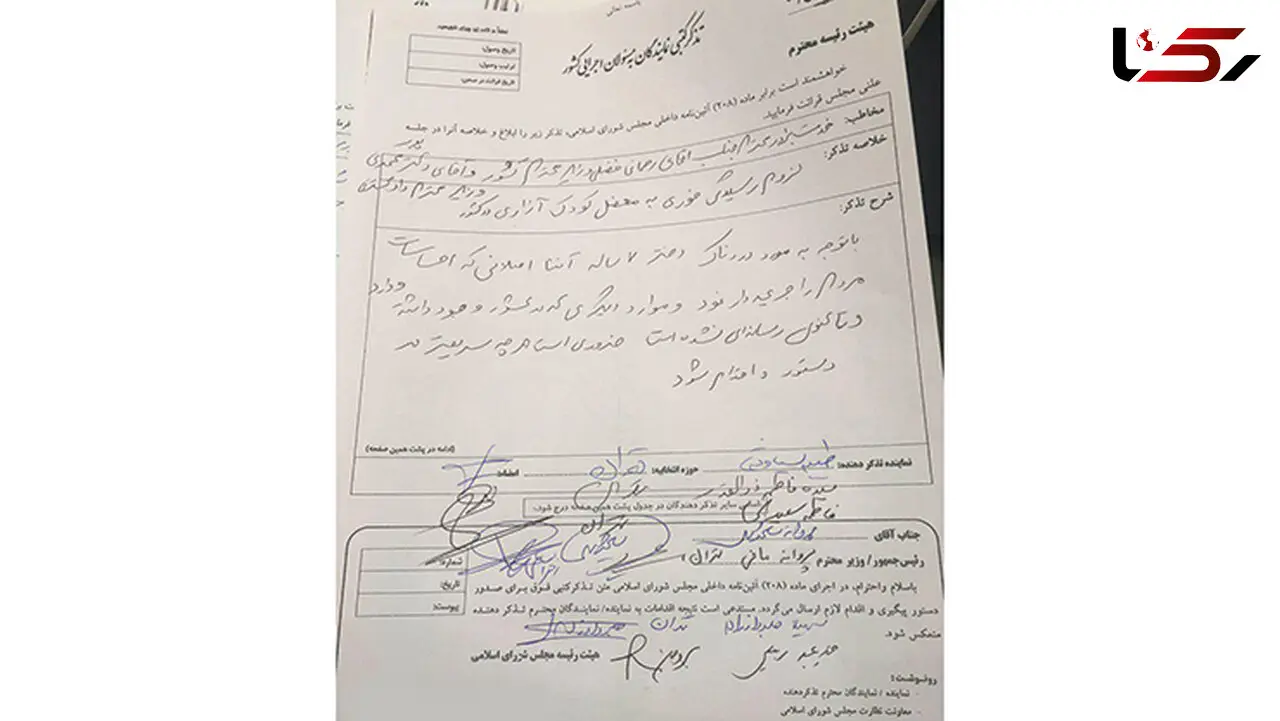 باسمه تعالی
رکنا
هیئت رئیسه محترم
تذکر کتبی نمایندگان به مسئولان اجرایی کشور
تاریخ وصول:
ترتیب وصول:
تاریخ قرائت در صحن:
خواهشمند است برابر ماده (۲۰۸) آئین‌نامه داخلی مجلس شورای اسلامی، تذکر زیر را ابلاغ و خلاصه آنرا در جلسه
علنی مجلس قرائت فرمایید.
مخاطب: جناب آقای رحمانی فضلی وزیر محترم کشور و آقای دکتر
وزیر محترم دادگستری
خلاصه تذکر: لزوم رسیدگی فوری به معضل کودک آزاری در کشور
شرح تذکر:
با توجه به مورد دردناک دختر ۷ ساله آتنا اصلانی که احساسات
مردم را جریحه‌دار نمود و موارد دیگری که در کشور وجود داشته و دارد
و تاکنون رسانه‌ای نشده است ضروری است هر چه سریعتر
دستور و اقدام شود
(ادامه در پشت همین صفحه)
نماینده تذکر دهنده: طیبه سیاوشی حوزه انتخابیه: تهران امضاء:
سیده فاطمه ذوالقدر تهران
اسامی سایر تذکر دهندگان در جدول پشت همین صفحه درج شود.
فاطمه سعیدی تهران
جناب آقای
پروانه سلحشوری
رئیس‌جمهور / وزیر محترم پروانه مافی تهران
شماره:
تاریخ:
پیوست:
باسلام واحترام، در اجرای ماده (۲۰۸) آئین‌نامه داخلی مجلس شورای اسلامی متن تذکر کتبی فوق برای صدور
دستور پیگیری و اقدام لازم ارسال می‌گردد. مستدعی است نتیجه اقدامات به نماینده/ نمایندگان محترم تذکر دهنده
منعکس شود.
تهران
هیئت رئیسه مجلس شورای اسلامی
رونوشت:
- نماینده / نمایندگان محترم تذکردهنده
- معاونت نظارت مجلس شورای اسلامی